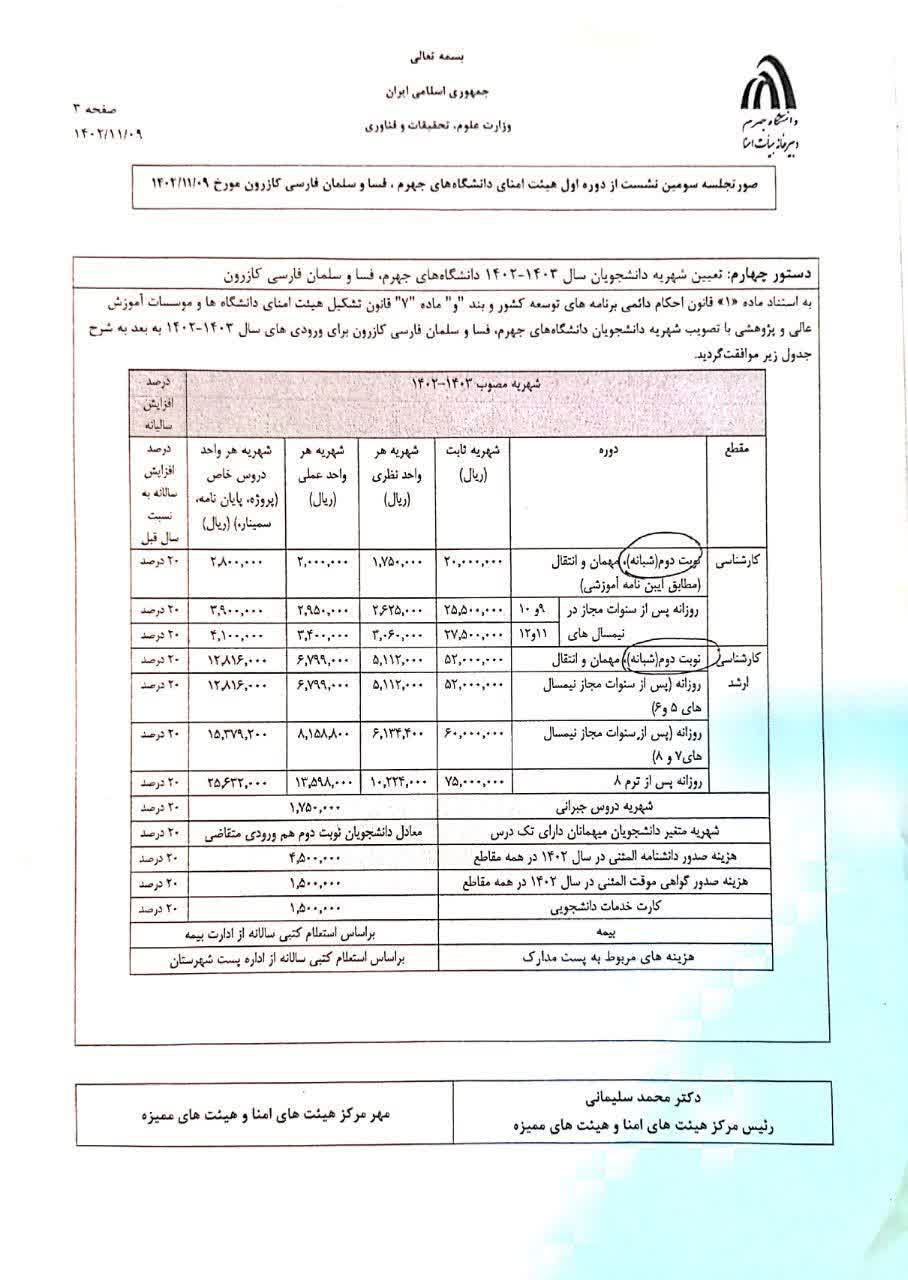 بسمه تعالی
جمهوری اسلامی ایران
وزارت علوم، تحقیقات و فناوری
دانشگاه جهرم
دبیرخانه هیأت امنا
صفحه ۳
۱۴۰۲/۱۱/۰۹
صورتجلسه سومین نشست از دوره اول هیئت امنای دانشگاه‌های جهرم ، فسا و سلمان فارسی کازرون مورخ ۱۴۰۲/۱۱/۰۹
دستور چهارم: تعیین شهریه دانشجویان سال ۱۴۰۳-۱۴۰۲ دانشگاه‌های جهرم، فسا و سلمان فارسی کازرون
به استناد ماده «۱» قانون احکام دائمی برنامه های توسعه کشور و بند "و" ماده "۷" قانون تشکیل هیئت امنای دانشگاه ها و موسسات آموزش
عالی و پژوهشی با تصویب شهریه دانشجویان دانشگاه‌های جهرم، فسا و سلمان فارسی کازرون برای ورودی های سال ۱۴۰۳-۱۴۰۲ به بعد به شرح
جدول زیر موافقت‌گردید.
شهریه مصوب ۱۴۰۳-۱۴۰۲
درصد
افزایش
سالیانه
مقطع
دوره
شهریه ثابت
(ریال)
شهریه هر
واحد نظری
(ریال)
شهریه هر
واحد عملی
(ریال)
شهریه هر واحد
دروس خاص
(پروژه، پایان نامه،
سمینار،) (ریال)
درصد
افزایش
سالانه به
نسبت
سال قبل
کارشناسی
نوبت دوم(شبانه)، مهمان و انتقال
(مطابق آیین نامه آموزشی)
۲۰,۰۰۰,۰۰۰ ۱,۷۵۰,۰۰۰ ۲,۰۰۰,۰۰۰ ۲,۸۰۰,۰۰۰ ۲۰ درصد
روزانه پس از سنوات مجاز در
نیمسال های
۹و ۱۰ ۲۵,۵۰۰,۰۰۰ ۲,۶۲۵,۰۰۰ ۲,۹۵۰,۰۰۰ ۳,۹۰۰,۰۰۰ ۲۰ درصد
۱۱و۱۲ ۲۷,۵۰۰,۰۰۰ ۳,۰۶۰,۰۰۰ ۳,۴۰۰,۰۰۰ ۴,۱۰۰,۰۰۰ ۲۰ درصد
کارشناسی
ارشد
نوبت دوم(شبانه)، مهمان و انتقال ۵۲,۰۰۰,۰۰۰ ۵,۱۱۲,۰۰۰ ۶,۷۹۹,۰۰۰ ۱۲,۸۱۶,۰۰۰ ۲۰ درصد
روزانه (پس از سنوات مجاز نیمسال
های ۵ و۶)
۵۲,۰۰۰,۰۰۰ ۵,۱۱۲,۰۰۰ ۶,۷۹۹,۰۰۰ ۱۲,۸۱۶,۰۰۰ ۲۰ درصد
روزانه (پس از سنوات مجاز نیمسال
های۷ و ۸)
۶۰,۰۰۰,۰۰۰ ۶,۱۳۴,۴۰۰ ۸,۱۵۸,۸۰۰ ۱۵,۳۷۹,۲۰۰ ۲۰ درصد
روزانه پس از ترم ۸ ۷۵,۰۰۰,۰۰۰ ۱۰,۲۲۴,۰۰۰ ۱۳,۵۹۸,۰۰۰ ۲۵,۶۳۲,۰۰۰ ۲۰ درصد
شهریه دروس جبرانی ۱,۷۵۰,۰۰۰ ۲۰ درصد
شهریه متغیر دانشجویان میهمانان دارای تک درس معادل دانشجویان نوبت دوم هم ورودی متقاضی ۲۰ درصد
هزینه صدور دانشنامه المثنی در سال ۱۴۰۲ در همه مقاطع ۴,۵۰۰,۰۰۰ ۲۰ درصد
هزینه صدور گواهی موقت المثنی در سال ۱۴۰۲ در همه مقاطع ۱,۵۰۰,۰۰۰ ۲۰ درصد
کارت خدمات دانشجویی ۱,۵۰۰,۰۰۰ ۲۰ درصد
بیمه براساس استعلام کتبی سالانه از ادارت بیمه
هزینه های مربوط به پست مدارک براساس استعلام کتبی سالانه از اداره پست شهرستان
دکتر محمد سلیمانی
رئیس مرکز هیئت های امنا و هیئت های ممیزه
مهر مرکز هیئت های امنا و هیئت های ممیزه